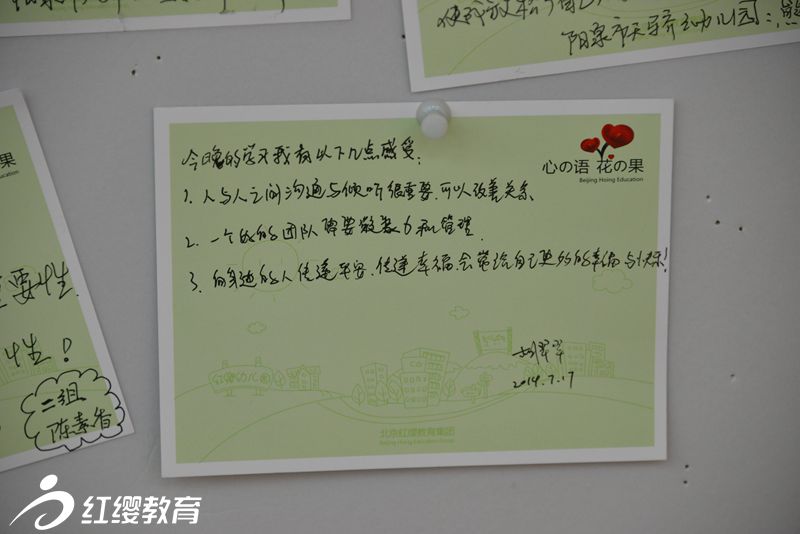 阳泉市天骄幼儿园
心の语 花の果
Beijing Hoing Education
今晚的学习我有以下几点感受:
1. 人与人之间沟通与倾听很重要,可以改善关系
2. 一个好的团队需要凝聚力和管理
3. 向身边的人传递平安、传递幸福,会带给自己更多的幸福与快乐!
2014.7.17
北京红缨教育集团
Beijing Hoing Education Group
果
Education
要性
性!
二组
陈素香
红缨教育